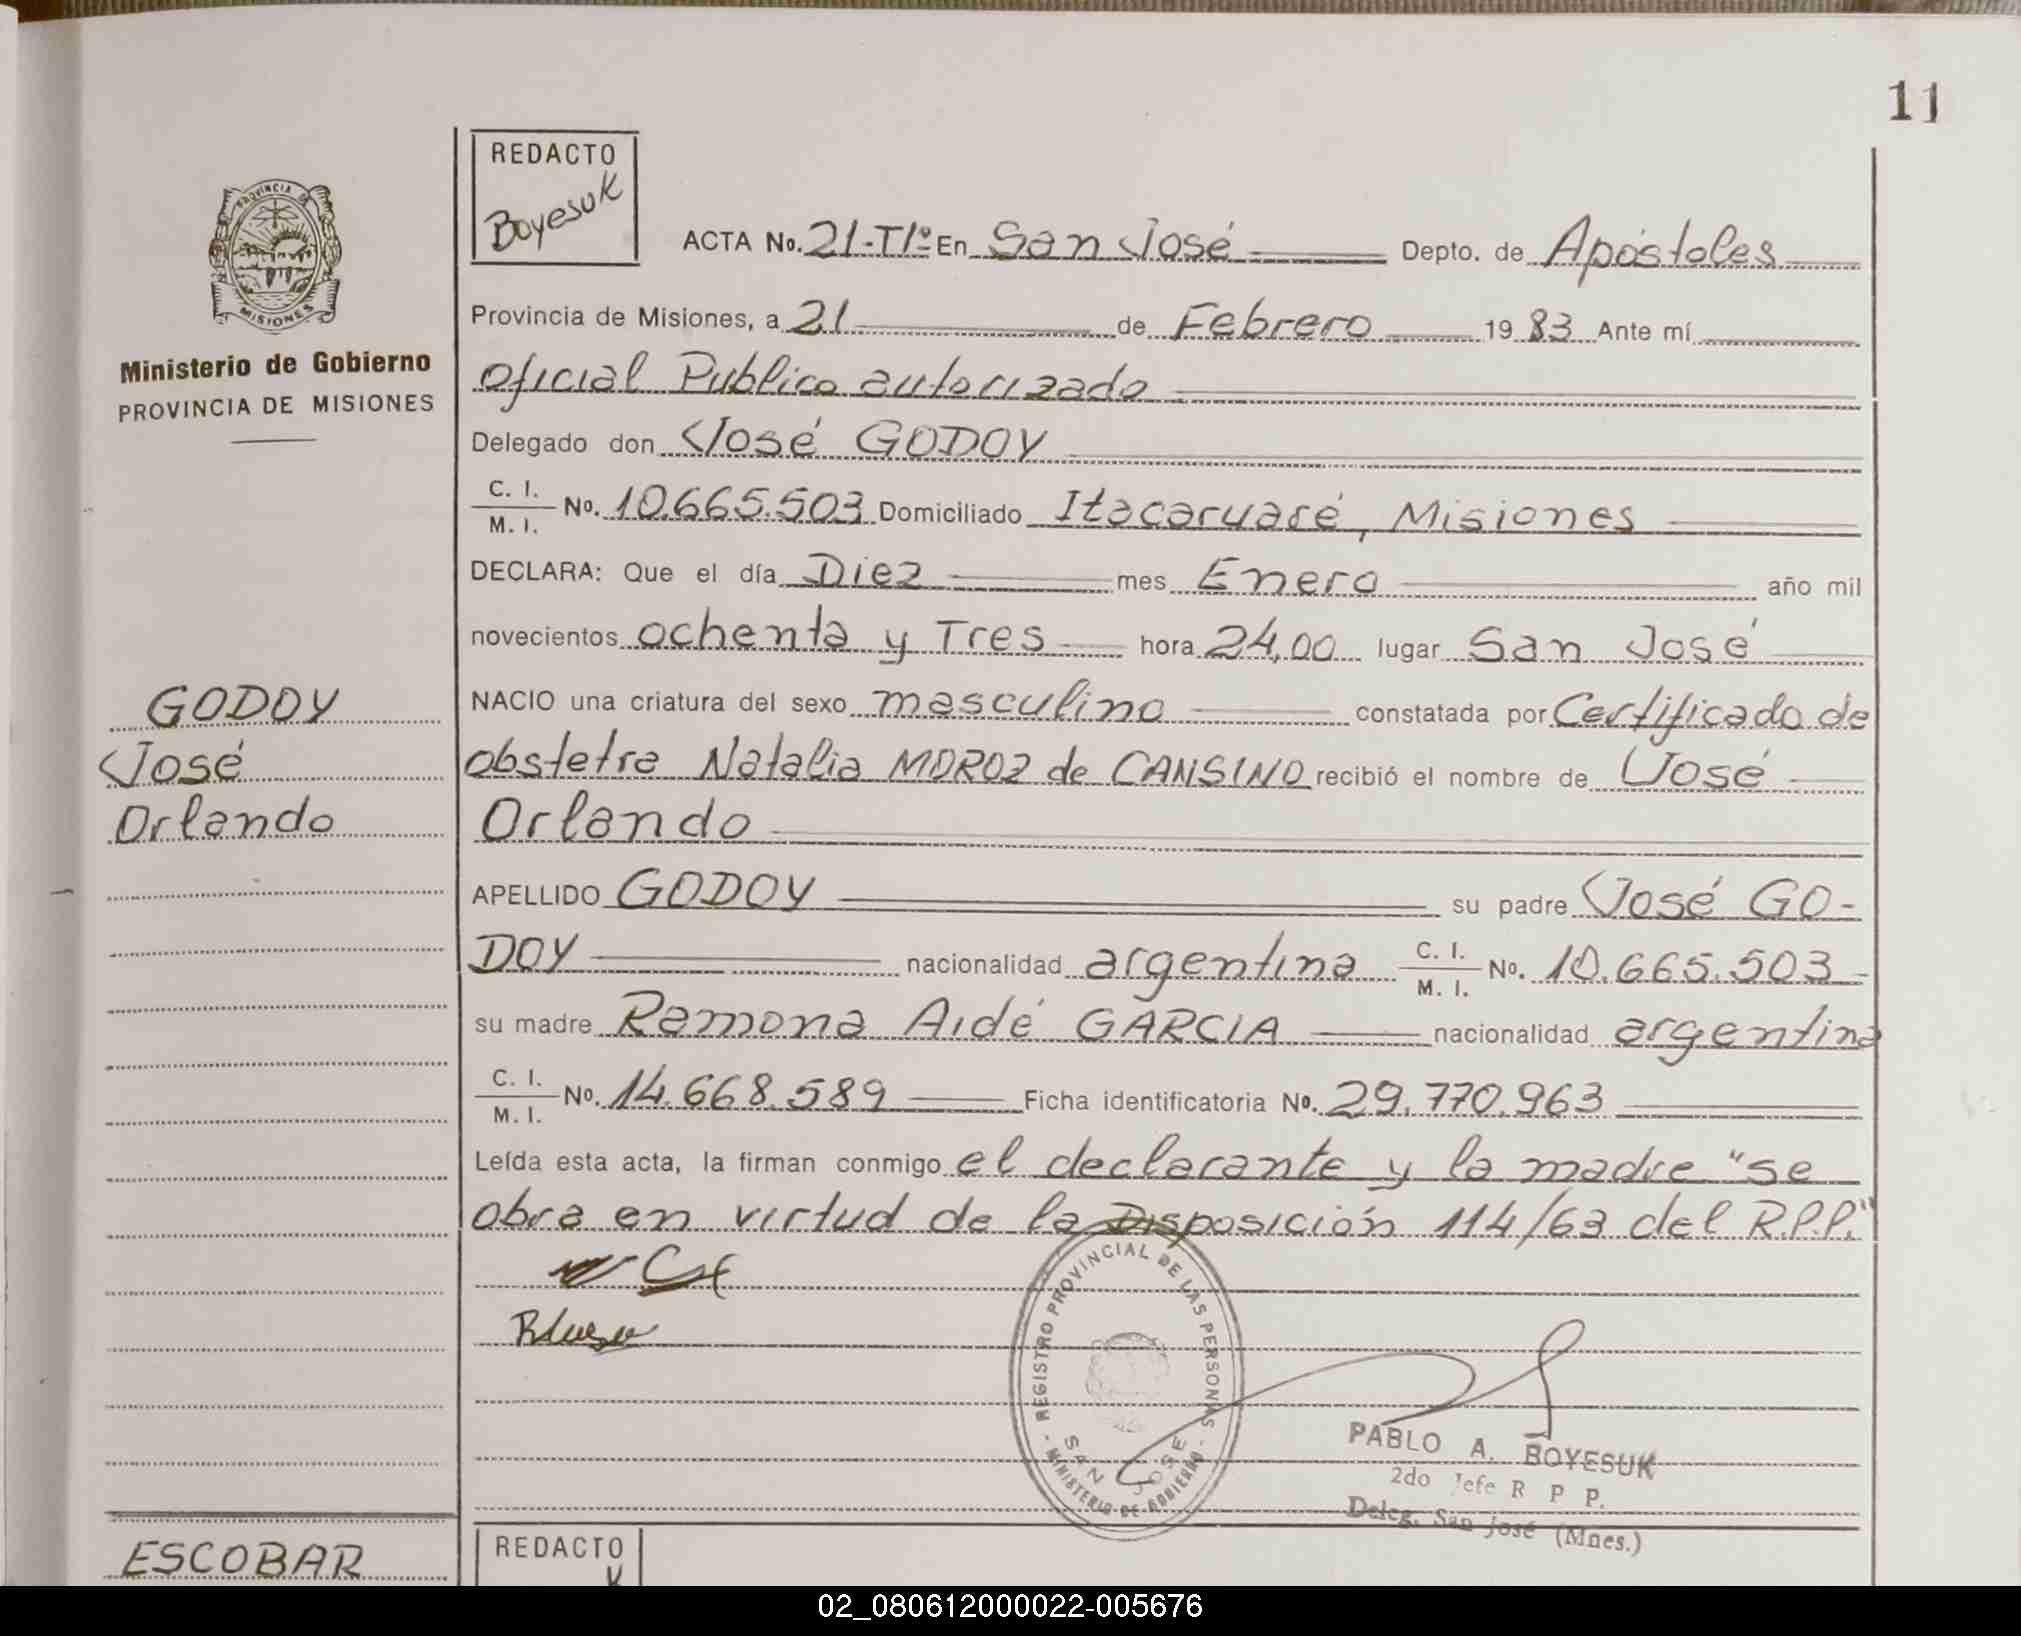 11
REDACTO
Boyesuk
PROVINCIA DE
MISIONES
Ministerio de Gobierno
PROVINCIA DE MISIONES
ACTA No. 21-T1º En San José Depto. de Apóstoles
Provincia de Misiones, a 21 de Febrero 19 83 Ante mí
Oficial Publico autorizado
Delegado don José GODOY
C. I.
M. I. No. 10.665.503 Domiciliado Itacaruaré, Misiones
DECLARA: Que el día Diez mes Enero año mil
novecientos ochenta y Tres hora 24,00 lugar San José
GODOY
José
Orlando
NACIO una criatura del sexo masculino constatada por Certificado de
obstetra Natalia MOROZ de CANSINO recibió el nombre de José
Orlando
APELLIDO GODOY su padre José GO-
DOY nacionalidad argentina C. I. M. I. No. 10.665.503
su madre Ramona Aidé GARCIA nacionalidad argentina
C. I.
M. I. No. 14.668.589 Ficha identificatoria No. 29.770.963
Leída esta acta, la firman conmigo el declarante y la madre "se
obra en virtud de la Disposición 114/63 del R.P.P."
- REGISTRO PROVINCIAL DE LAS PERSONAS -
SAN JOSE
MINISTERIO DE GOBIERNO
PABLO A. BOYESUK
2do Jefe R P P.
Deleg. San José (Mnes.)
ESCOBAR
REDACTO
02_080612000022-005676